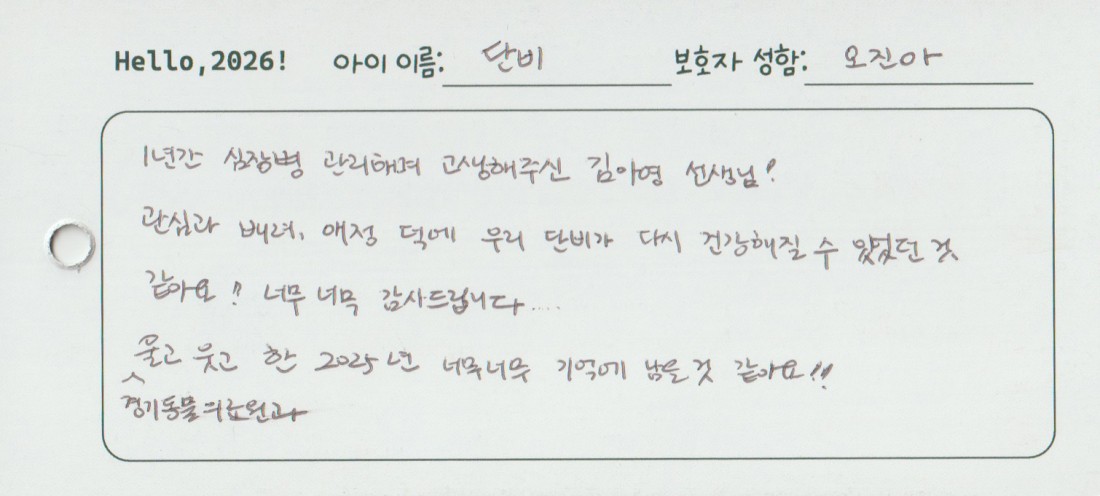 Hello,2026! 아이 이름: 단비 보호자 성함: 오진아
1년간 심장병 관리해며 고생해주신 김아영 선생님!
관심과 배려, 애정 덕에 우리 단비가 다시 건강해질 수 있었던 것
같아요!! 너무 너무 감사드립니다....
울고 웃고 한 2025년 너무너무 기억에 남을 것 같아요!!
^
경기동물의료원과